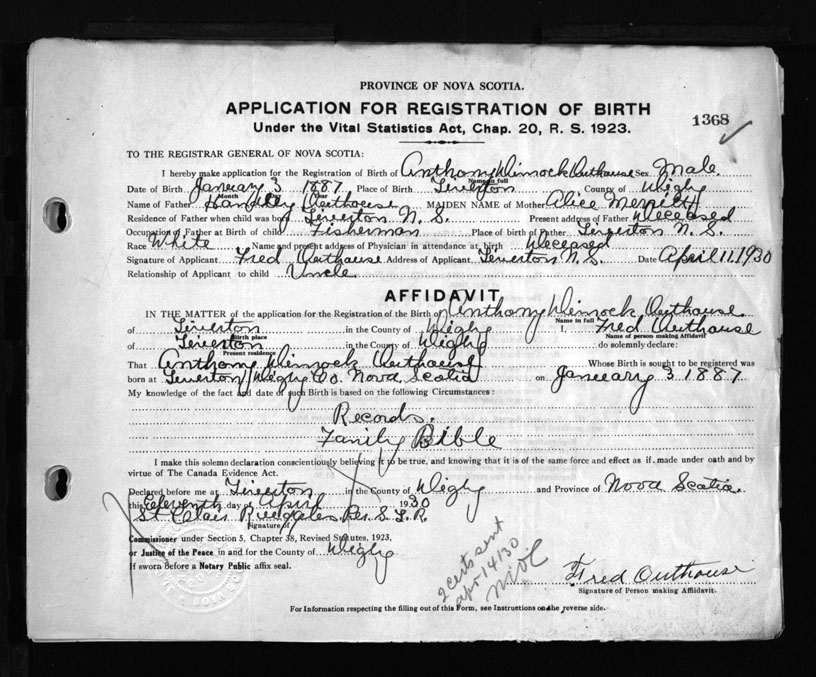 PROVINCE OF NOVA SCOTIA.
APPLICATION FOR REGISTRATION OF BIRTH
1368
Under the Vital Statistics Act, Chap. 20, R. S. 1923.
TO THE REGISTRAR GENERAL OF NOVA SCOTIA:
I hereby make application for the Registration of Birth of Anthony Dimock Outhouse Sex Male
Name in full
Date of Birth January 3 1887 Place of Birth Tiverton County of Digby
Month Day Year
Name of Father Handley Outhouse MAIDEN NAME of Mother Alice Merritt
Residence of Father when child was born Tiverton N. S. Present address of Father Deceased
Occupation of Father at Birth of child Fisherman Place of birth of Father Tiverton N. S.
Race White Name and present address of Physician in attendance at birth Deceased
Signature of Applicant Fred Outhouse Address of Applicant Tiverton N. S. Date April 11, 1930
Relationship of Applicant to child Uncle
AFFIDAVIT
IN THE MATTER of the application for the Registration of the Birth of Anthony Dimock Outhouse
Name in full
of Tiverton in the County of Digby I. Fred Outhouse
Birth place Name of person making Affidavit
of Tiverton in the County of Digby do solemnly declare:
Present residence
That Anthony Dimock Outhouse Whose Birth is sought to be registered was
born at Tiverton Digby Co. Nova Scotia on January 3 1887
My knowledge of the fact and date of such Birth is based on the following Circumstances:
Records.
Family Bible
I make this solemn declaration conscientiously believing it to be true, and knowing that it is of the same force and effect as if made under oath and by
virtue of The Canada Evidence Act.
Declared before me at Tiverton in the County of Digby and Province of Nova Scotia.
this Eleventh day of April 1930
St Clair
Signature of
Commissioner under Section 5, Chapter 38, Revised Statutes, 1923,
or Justice of the Peace in and for the County of Digby
If sworn before a Notary Public affix seal.
2 certs sent
apr 14/30
Fred Outhouse
Signature of Person making Affidavit.
For Information respecting the filling out of this Form, see Instructions on the reverse side.